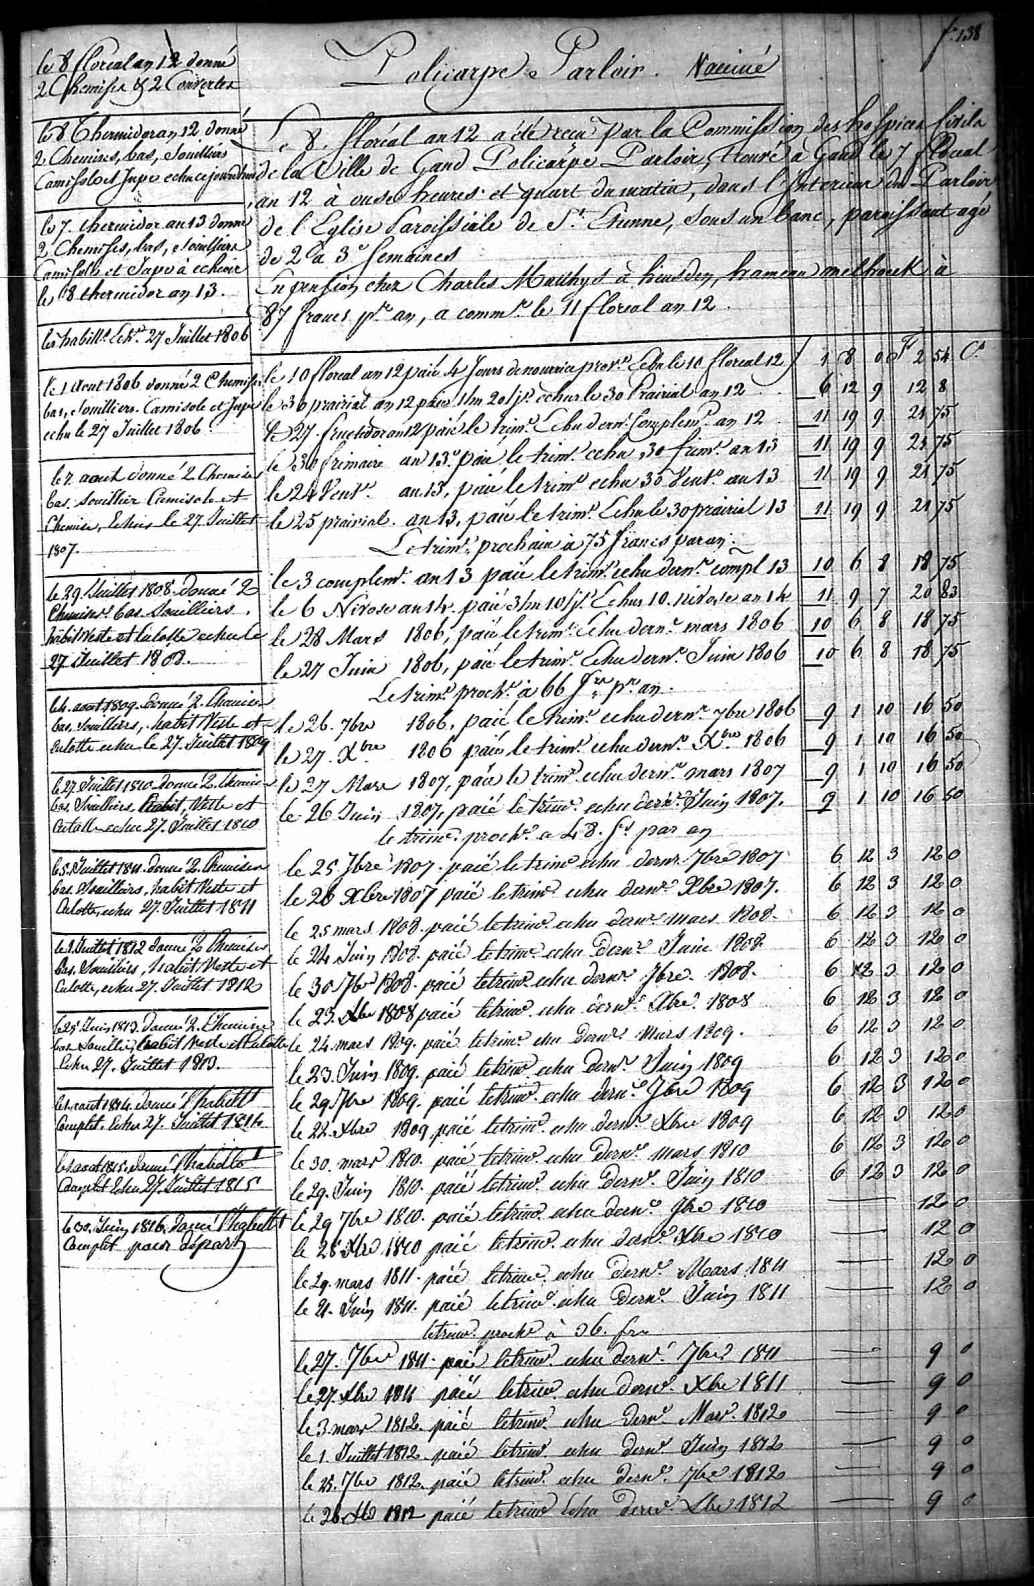 f. 138
Policarpe Parloir. Vacciné
le 8 floreal an 12 donné
2 Chemises & 2 Couvertes
le 8 Thermidor an 12 donné
2 Chemises, bas, Souilliers
Camisole et Jupe
le 7. thermidor an 13 donné
2 Chemises, bas, Souilliers
Camisole et Jupe à echoir
le 8 thermidor an 13.
les habill.ts Ech.s 27 Juillet 1806
le 1 Aout 1806 donné 2 Chemises
bas, Souilliers. Camisole et Jupe
echu le 27 Juillet 1806.
le 2 aout donné 2 Chemises
bas. Souillier Camisole et
Chemise, Echus le 27 Juillet
1807.
le 29. Juillet 1808. donné 2
Chemises bas. Souilliers.
habit Veste et Culotte echu le
27 Juillet 1808.
le 4. aout 1809. donné 2. Chemises
bas, Souilliers, habit Veste et
Culotte echu le 27. Juillet 1809
le 27. Juillet 1810. donné 2. Chemises
bas, Souilliers, habit, Veste et
Culotte echu 27. Juillet 1810
le 5. Juillet 1811. donné 2. Chemises
bas, Souilliers, habit Veste et
Culotte, echu 27. Juillet 1811
le 1. Juillet 1812 donné 2 Chemises
bas. Souilliers, habit Veste et
Culotte, echu 27. Juillet 1812
le 25 Juin 1813. donné 2. Chemises
bas Souilliers habit Veste et Culotte
Echu 27. Juillet 1813.
le 1. aout 1814. donné l'habill.t
Complet. Echu 27. Juillet 1814.
le 1 aout 1815. donné l'habill.t
Complet Echu 27. Juillet 1815
le 30. Juin 1816. donné l'habill.t
Complet pour départ
Le 8. floréal an 12 a été reçu par la Commission des hospices Civils
de la Ville de Gand Policarpe Parloir, trouvé à Gand le 7 floreal
an 12 à onse heures et quart du matin, dans l'Interieur du Parloir
de l'Eglise Paroissiale de S.t Etienne, Sous un banc, paroissant agé
de 2 a 3 Semaines
En pension chez Charles Matthys à heusden, hameau melhoek à
87 francs p.r an, a comm.r le 11 floreal an 12.
le 10 floreal an 12 paié 4 Jours de nourrice prov.re Echu le 10 floreal 12 / 1 8 0 F 2 54 C.s
le 30 prairial an 12 paié 1 m 20 js. echus le 30 Prairial an 12 6 12 9 12 8
le 27. fructidor an 12 paié le trim.e Echu dern. Complem.re an 12 11 19 9 21 75
le 30 frimaire an 13. paié le trim.e echu 30 frim.e an 13 11 19 9 21 75
le 24 Vent.e an 13, paié le trim.e echu 30 Vent.e an 13 11 19 9 21 75
le 25 prairial. an 13, paié le trim.e Echu le 30 prairial 13 11 19 9 21 75
Le trim.e prochain à 75 francs par an.
le 3 complem.re an 13 paié le trim.e echu dern.r compl 13 10 6 8 18 75
le 6 Nivose an 14. paié 3 m 10 js. Echus 10. nivose an 14 11 9 7 20 83
le 28 Mars 1806, paié le trim.e echu dern.r mars 1806 10 6 8 18 75
le 27 Juin 1806, paié le trim.e Echu dern.r Juin 1806 10 6 8 18 75
Le trim.e proch.n à 66 f.rs p.r an.
le 26. 7bre 1806. paié le trim.e echu dern.r 7bre 1806 9 1 10 16 50
le 27. X.bre 1806 paié le trim.e echu dern.r X.bre 1806 9 1 10 16 50
le 27 Mars 1807, paié le trim.e echu dern.r mars 1807 9 1 10 16 50
le 26 Juin 1807, paié le trim.e echu dern.r Juin 1807. 9 1 10 16 50
le trim.e proch.n a 48. f.s par an
le 25 7bre 1807. paié le trim.e echu dern.r 7bre 1807 6 12 3 12 0
le 26 Xbre 1807 paié le trim.e echu dern.r Xbre 1807. 6 12 3 12 0
le 25 mars 1808. paié le trim.e echu dern.r mars 1808. 6 12 3 12 0
le 24 Juin 1808. paié le trim.e echu dern.r Juin 1808. 6 12 3 12 0
le 30 7bre 1808. paié le trim.e echu dern.r 7bre. 1808. 6 12 3 12 0
le 23. Xbre 1808 paié le trim.e echu dern.r Xbre. 1808 6 12 3 12 0
le 24 mars 1809. paié le trim.e echu dern.r Mars 1809. 6 12 3 12 0
le 23. Juin 1809. paié le trim.e echu dern.r Juin 1809 6 12 3 12 0
le 29 7bre 1809. paié le trim.e echu dern.r 7bre 1809 6 12 3 12 0
le 22. Xbre 1809 paié le trim.e echu dern.r Xbre 1809 6 12 3 12 0
le 30. mars 1810. paié le trim.e echu dern.r mars 1810 6 12 3 12 0
le 29. Juin 1810. paié le trim.e echu dern.r Juin 1810 6 12 3 12 0
le 29 7bre 1810. paié le trim.e echu dern.r 7bre 1810 12 0
le 28 Xbre 1810 paié le trim.e echu dern.r Xbre 1810 12 0
le 29. mars 1811. paié le trim.e echu dern.r Mars 1811 12 0
le 21. Juin 1811. paié le trim.e echu dern.r Juin 1811 12 0
le trim.e proch.n à 36. frs
le 27. 7bre 1811. paié le trim.e echu dern.r 7bre 1811 9 0
le 27. Xbre 1811 paié le trim.e echu dern.r Xbre 1811 9 0
le 3 mars 1812. paié le trim.e echu dern.r Mars. 1812 9 0
le 1. Juillet 1812. paié le trim.e echu dern.r Juin 1812 9 0
le 25. 7bre 1812. paié le trim.e echu dern.r 7bre 1812 9 0
le 26 Xbre 1812 paié le trim.e Echu dern.r Xbre 1812 9 0